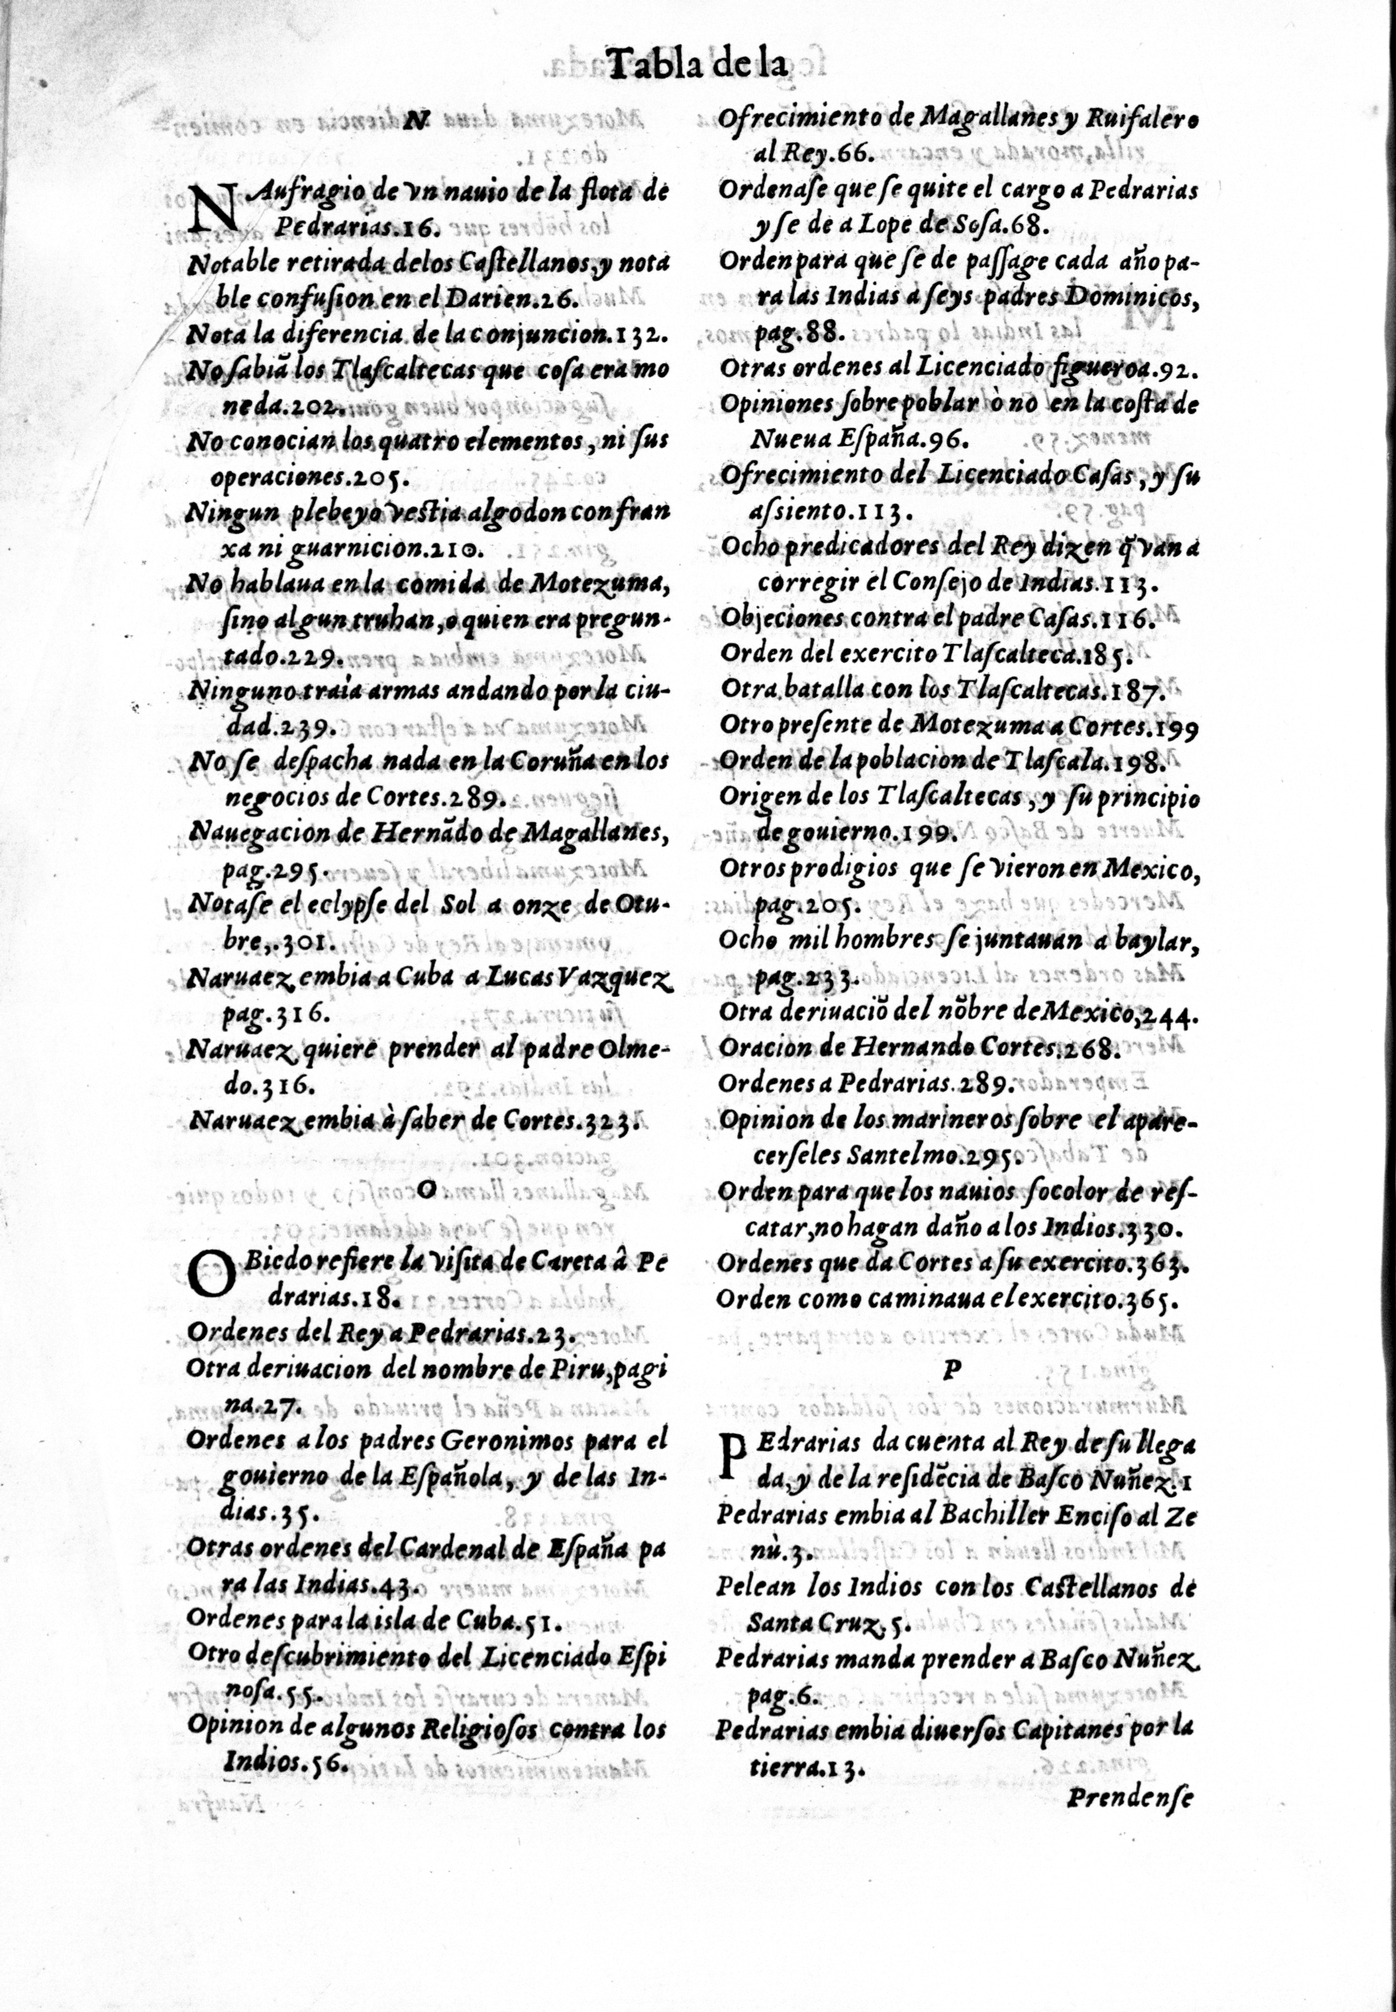 Tabla de la
N
NAufragio de vn nauio de la flota de
Pedrarias.16.
Notable retirada delos Caſtellanos,y nota
ble confuſion en el Darien.26.
Nota la diferencia de la conjuncion.132.
No ſabiã los Tlaſcaltecas que coſa era mo
neda.202.
No conocian los quatro elementos, ni ſus
operaciones.205.
Ningun plebeyo veſtia algodon con fran
xa ni guarnicion.210.
No hablaua en la comida de Motezuma,
ſino algun truhan,o quien era pregun-
tado.229.
Ninguno traía armas andando por la ciu-
dad.239.
No ſe deſpacha nada en la Coruña en los
negocios de Cortes.289.
Nauegacion de Hernãdo de Magallanes,
pag.295.
Notaſe el eclypſe del Sol a onze de Otu-
bre,.301.
Naruaez embia a Cuba a Lucas Vazquez
pag.316.
Naruaez quiere prender al padre Olme-
do.316.
Naruaez embia à ſaber de Cortes.323.
O
OBiedo refiere la viſita de Careta â Pe
drarias.18.
Ordenes del Rey a Pedrarias.23.
Otra deriuacion del nombre de Piru,pagi
na.27.
Ordenes a los padres Geronimos para el
gouierno de la Eſpañola, y de las In-
dias.35.
Otras ordenes del Cardenal de Eſpaña pa
ra las Indias.43.
Ordenes para la isla de Cuba.51.
Otro deſcubrimiento del Licenciado Eſpi
noſa.55.
Opinion de algunos Religioſos contra los
Indios.56.
Ofrecimiento de Magallanes y Ruifalero
al Rey.66.
Ordenaſe que ſe quite el cargo a Pedrarias
y ſe de a Lope de Soſa.68.
Orden para que ſe de paſſage cada año pa-
ra las Indias a ſeys padres Dominicos,
pag.88.
Otras ordenes al Licenciado figueroa.92.
Opiniones ſobre poblar ò no en la coſta de
Nueua Eſpaña.96.
Ofrecimiento del Licenciado Caſas, y ſu
aſsiento.113.
Ocho predicadores del Rey dizen q̃ van a
corregir el Conſejo de Indias.113.
Objeciones contra el padre Caſas.116.
Orden del exercito Tlaſcalteca.185.
Otra batalla con los Tlaſcaltecas.187.
Otro preſente de Motezuma a Cortes.199
Orden de la poblacion de Tlaſcala.198.
Origen de los Tlaſcaltecas, y ſu principio
de gouierno.199.
Otros prodigios que ſe vieron en Mexico,
pag.205.
Ocho mil hombres ſe juntauan a baylar,
pag.233.
Otra deriuaciõ del nõbre de Mexico,244.
Oracion de Hernando Cortes.268.
Ordenes a Pedrarias.289.
Opinion de los marineros ſobre el apare-
cerſeles Santelmo.295.
Orden para que los nauios ſocolor de reſ-
catar,no hagan daño a los Indios.330.
Ordenes que da Cortes a ſu exercito.363.
Orden como caminaua el exercito.365.
P
PEdrarias da cuenta al Rey de ſu llega
da,y de la reſidẽcia de Baſco Nuñez.1
Pedrarias embia al Bachiller Enciſo al Ze
nù.3.
Pelean los Indios con los Caſtellanos de
Santa Cruz.5.
Pedrarias manda prender a Baſco Nuñez
pag.6.
Pedrarias embia diuerſos Capitanes por la
tierra.13.
Prendenſe